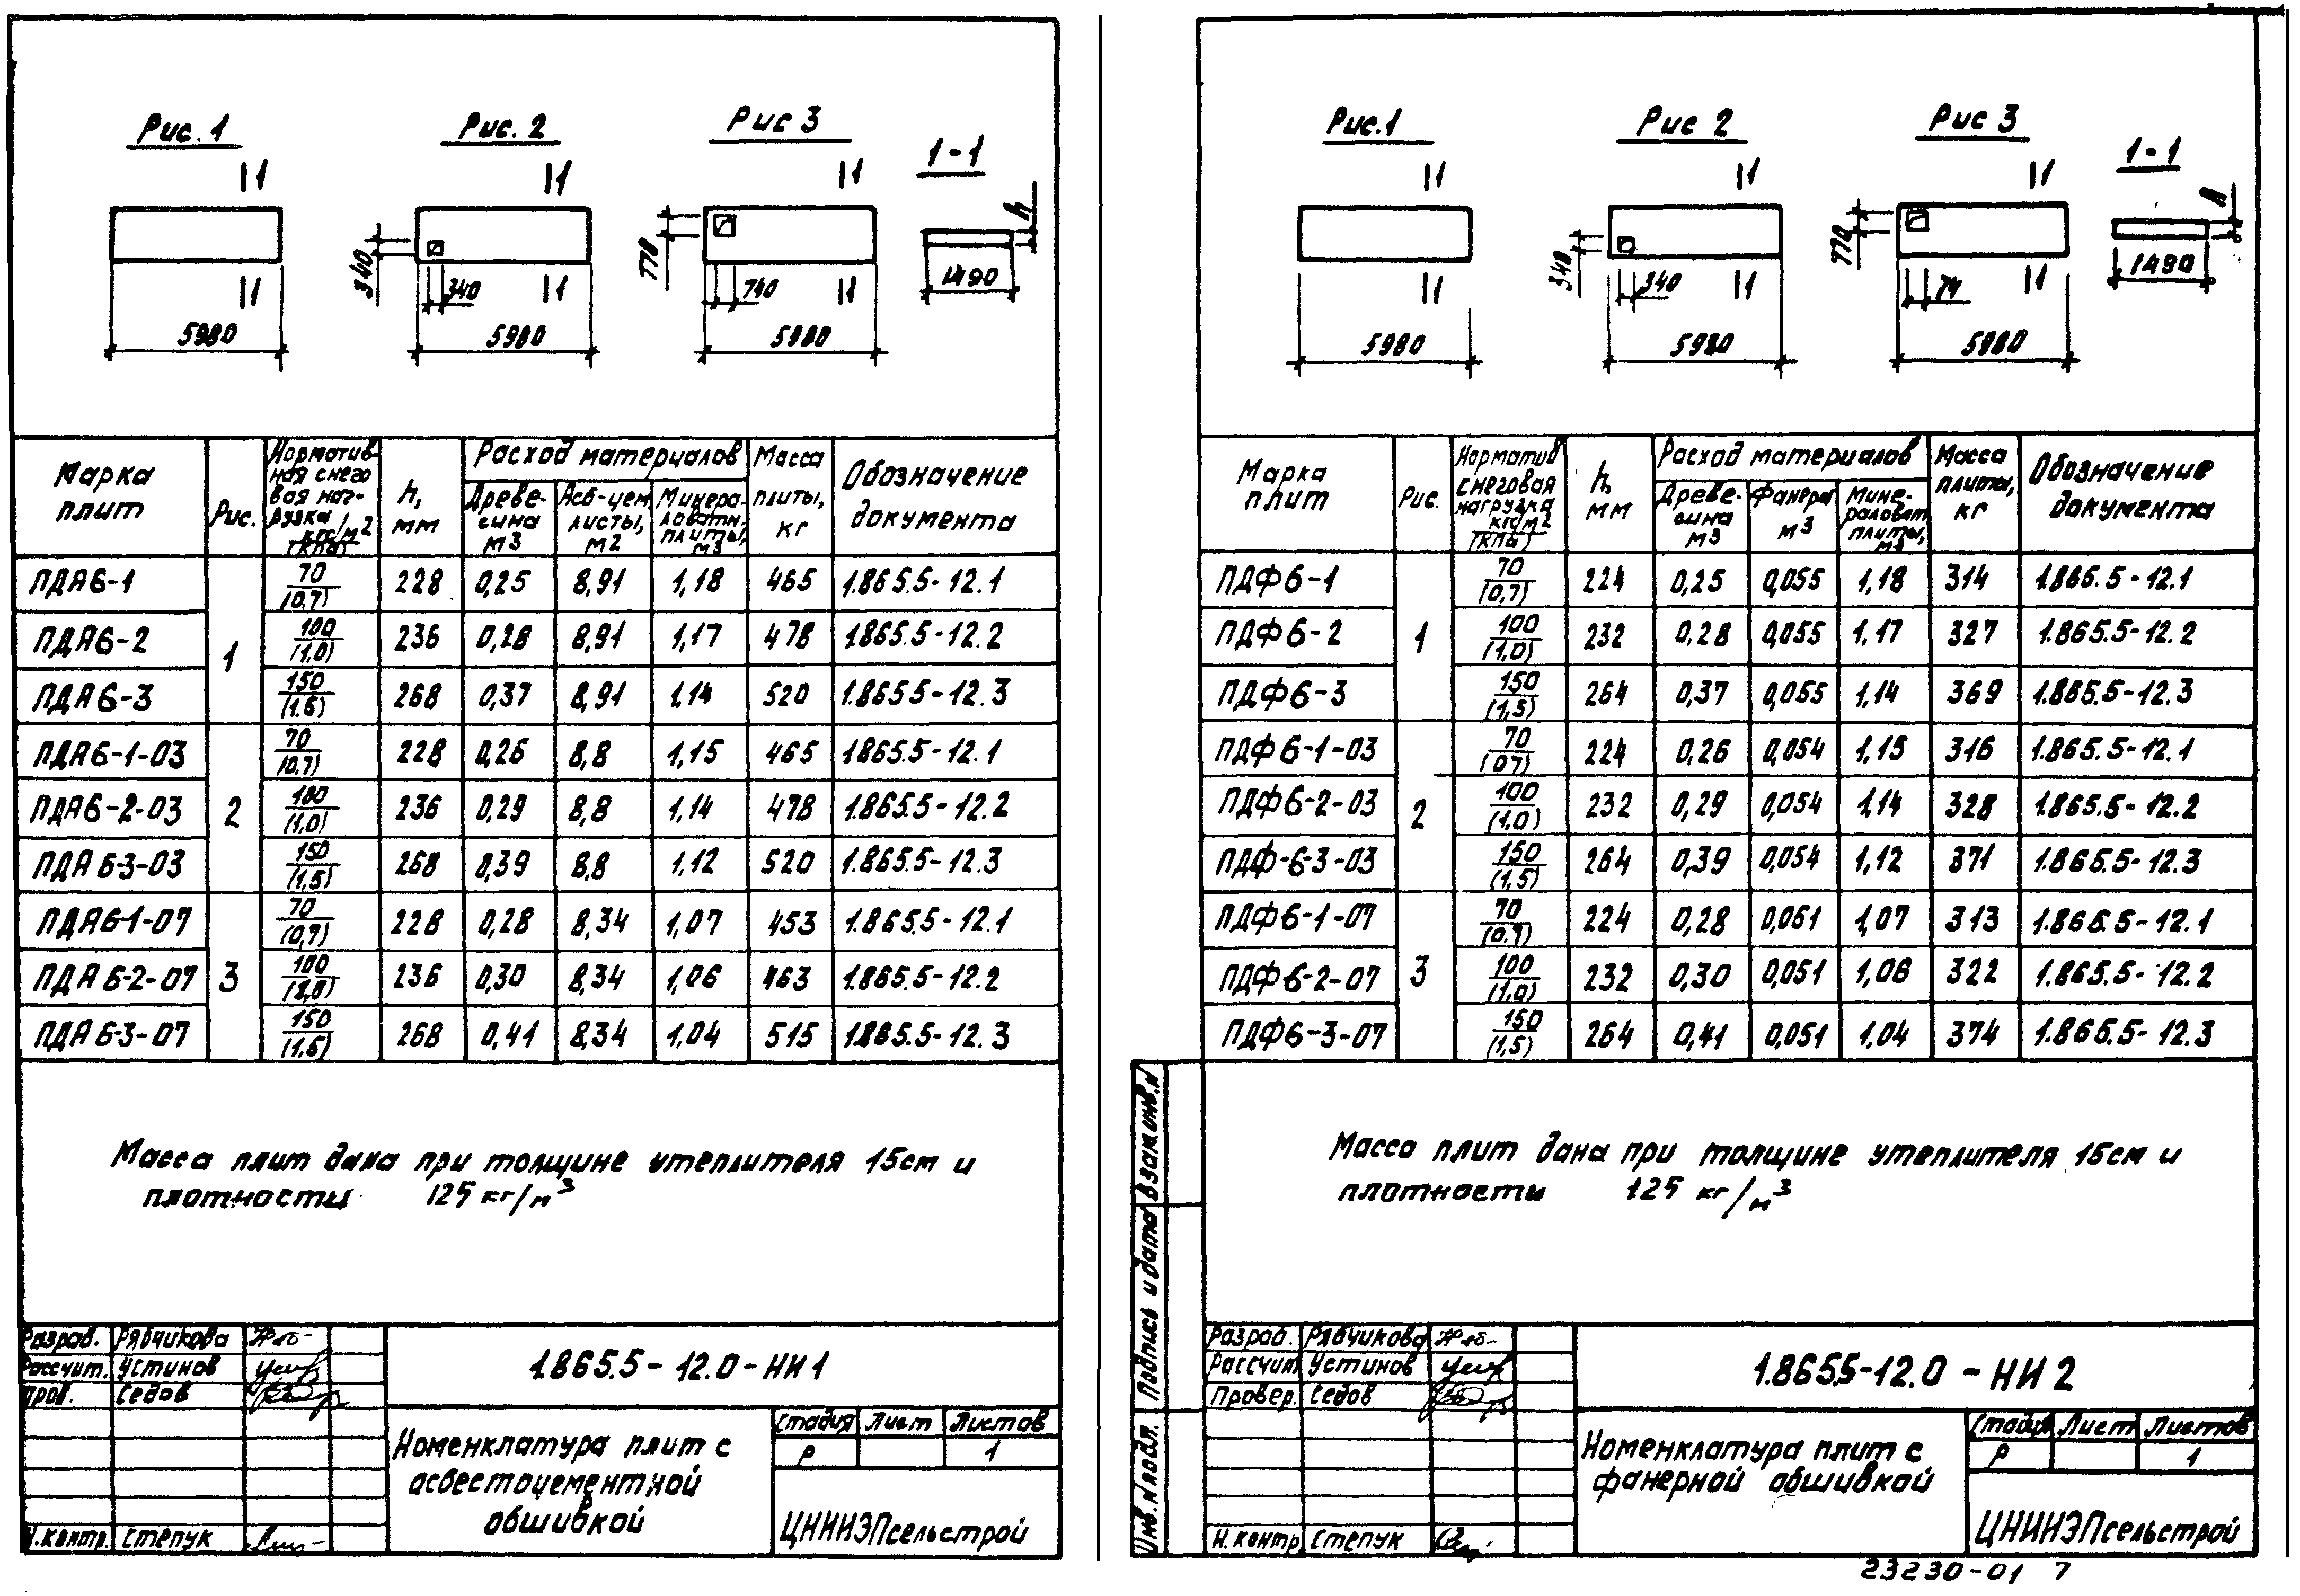 Рис. 1
Рис. 2
Рис 3
1-1
1
1
1
h
340
340
770
740
1490
1
1
1
5980
5980
5980
Марка плит
Рис.
Норматив-
ная снего
вая наг-
рузка
кгс/м2
(кПа)
h, мм
Расход материалов
Древе-
сина
м3
Асб-цем.
листы,
м2
Минера-
ловатн.
плиты,
м3
Масса плиты, кг
Обозначение документа
ПДА6-1 1 70 (0,7) 228 0,25 8,91 1,18 465 1.865.5-12.1
ПДА6-2 100 (1,0) 236 0,28 8,91 1,17 478 1.865.5-12.2
ПДА6-3 150 (1,5) 268 0,37 8,91 1,14 520 1.865.5-12.3
ПДА6-1-03 2 70 (0,7) 228 0,26 8,8 1,15 465 1.865.5-12.1
ПДА6-2-03 100 (1,0) 236 0,29 8,8 1,14 478 1.865.5-12.2
ПДА 6-3-03 150 (1,5) 268 0,39 8,8 1,12 520 1.865.5-12.3
ПДА6-1-07 3 70 (0,7) 228 0,28 8,34 1,07 453 1.865.5-12.1
ПДА 6-2-07 100 (1,0) 236 0,30 8,34 1,06 463 1.865.5-12.2
ПДА 6-3-07 150 (1,5) 268 0,41 8,34 1,04 515 1.865.5-12.3
Масса плит дана при толщине утеплителя 15см и
плотности 125 кг/м3
Разраб. Рябчикова
Рассчит. Устинов
Пров. Седов
Н.контр. Степук
1.865.5-12.0-НИ1
Номенклатура плит с
асбестоцементной
обшивкой
Стадия Лист Листов
Р 1
ЦНИИЭПсельстрой
Рис.1
Рис 2
Рис 3
1-1
1
1
1
h
340
340
770
74
1490
1
1
1
5980
5980
5980
Марка плит
Рис.
Норматив
снеговая
нагрузка
кгс/м2
(кПа)
h, мм
Расход материалов
Древе-
сина
м3
Фанера
м3
Мине-
раловат.
плиты,
м3
Масса плиты, кг
Обозначение документа
ПДФ6-1 1 70 (0,7) 224 0,25 0,055 1,18 314 1.865.5-12.1
ПДФ6-2 100 (1,0) 232 0,28 0,055 1,17 327 1.865.5-12.2
ПДФ6-3 150 (1,5) 264 0,37 0,055 1,14 369 1.865.5-12.3
ПДФ6-1-03 2 70 (0,7) 224 0,26 0,054 1,15 316 1.865.5-12.1
ПДФ6-2-03 100 (1,0) 232 0,29 0,054 1,14 328 1.865.5-12.2
ПДФ-6-3-03 150 (1,5) 264 0,39 0,054 1,12 371 1.865.5-12.3
ПДФ6-1-07 3 70 (0,7) 224 0,28 0,051 1,07 313 1.865.5-12.1
ПДФ6-2-07 100 (1,0) 232 0,30 0,051 1,06 322 1.865.5-12.2
ПДФ6-3-07 150 (1,5) 264 0,41 0,051 1,04 374 1.865.5-12.3
Масса плит дана при толщине утеплителя 15см и
плотности 125 кг/м3
Взам.инв.N
Подпись и дата
Инв.N подл.
Разраб. Рябчикова
Рассчит. Устинов
Провер. Седов
Н.контр. Степук
1.865.5-12.0-НИ2
Номенклатура плит с
фанерной обшивкой
Стадия Лист Листов
Р 1
ЦНИИЭПсельстрой
23230-01 7